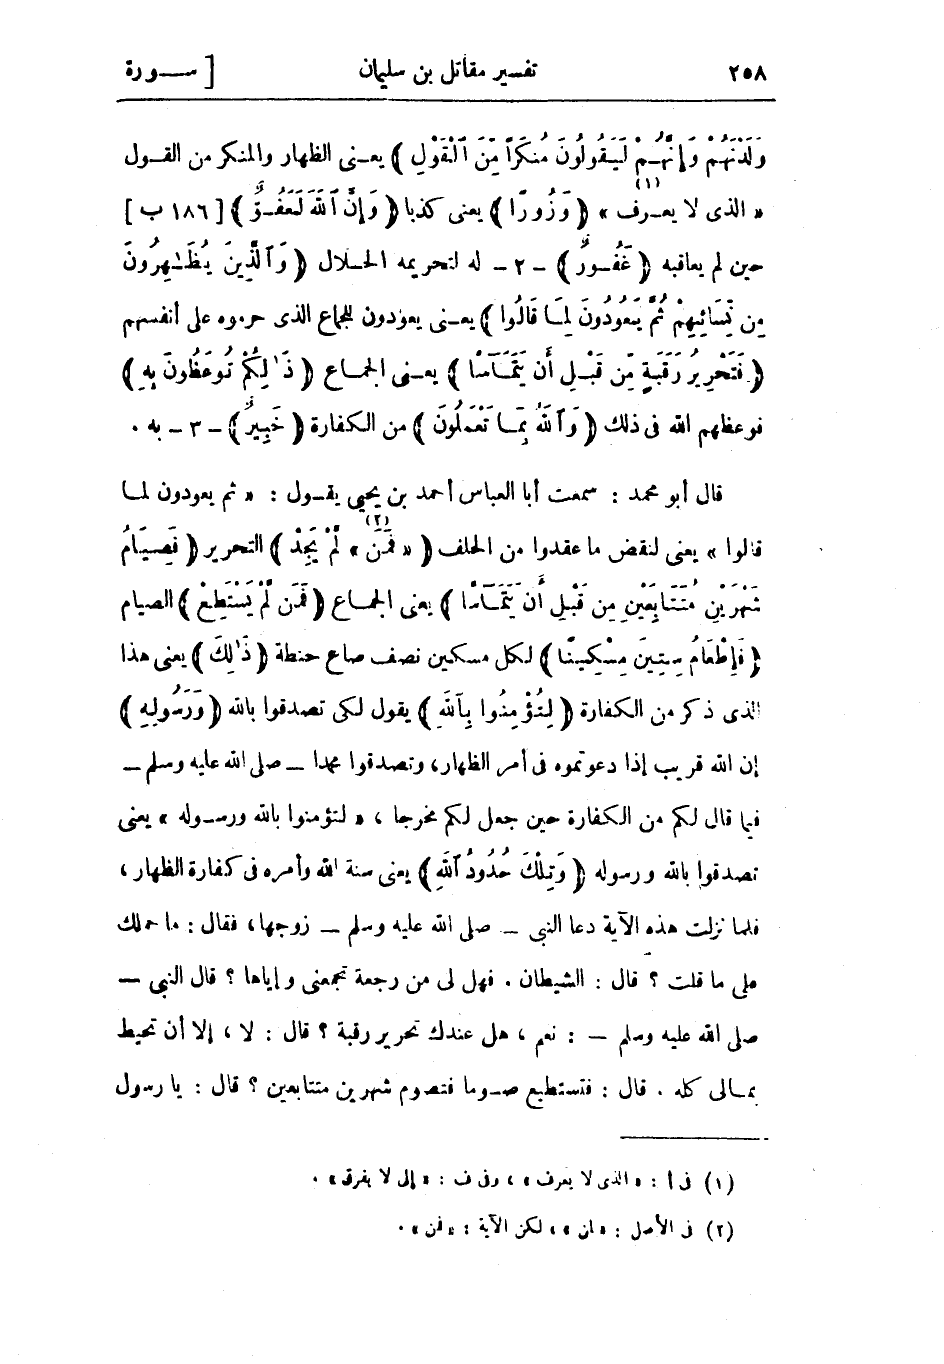 ٢٥٨ تفسير مقاتل بن سليمان [ سـورة
وَلَدْنَهُمْ وَإِنَّهُمْ لَيَقُولُونَ مُنكَرًا مِّنَ ٱلْقَوْلِ ﴾ يعنى الظهار والمنكر من القول
« الذى لا يعرف » (١) ﴿ وَزُورًا ﴾ يعنى كذبا ﴿ وَإِنَّ ٱللَّهَ لَعَفُوٌّ ﴾ [ ١٨٦ ب ]
حين لم يعاقبه ﴿ غَفُورٌ ﴾ ـ ٢ ـ له لتحريمه الحلال ﴿ وَٱلَّذِينَ يُظَـٰهِرُونَ
مِن نِّسَائِهِمْ ثُمَّ يَعُودُونَ لِمَا قَالُوا ﴾ يعنى يعودون للجماع الذى حرموه على أنفسهم
﴿ فَتَحْرِيرُ رَقَبَةٍ مِّن قَبْلِ أَن يَتَمَآسَّا ﴾ يعنى الجماع ﴿ ذَٰلِكُمْ تُوعَظُونَ بِهِ ﴾
فوعظهم الله فى ذلك ﴿ وَٱللَّهُ بِمَا تَعْمَلُونَ ﴾ من الكفارة ﴿ خَبِيرٌ ﴾ ـ ٣ ـ به .
قال أبو محمد : سمعت أبا العباس أحمد بن يحيى يقول : « ثم يعودون لما
قالوا » يعنى لنقض ما عقدوا من الحلف ﴿ « فَمَن » (٢) لَّمْ يَجِدْ ﴾ التحرير ﴿ فَصِيَامُ
شَهْرَيْنِ مُتَتَابِعَيْنِ مِن قَبْلِ أَن يَتَمَآسَّا ﴾ يعنى الجماع ﴿ فَمَن لَّمْ يَسْتَطِعْ ﴾ الصيام
﴿ فَإِطْعَامُ سِتِّينَ مِسْكِينًا ﴾ لكل مسكين نصف صاع حنطة ﴿ ذَٰلِكَ ﴾ يعنى هذا
الذى ذكر من الكفارة ﴿ لِتُؤْمِنُوا بِٱللَّهِ ﴾ يقول لكى تصدقوا بالله ﴿ وَرَسُولِهِ ﴾
إن الله قريب إذا دعوتموه فى أمر الظهار، وتصدقوا محمدا ـ صلى الله عليه وسلم ـ
فيما قال لكم من الكفارة حين جعل لكم مخرجا ، « لتؤمنوا بالله ورسوله » يعنى
تصدقوا بالله ورسوله ﴿ وَتِلْكَ حُدُودُ ٱللَّهِ ﴾ يعنى سنة الله وأمره فى كفارة الظهار ،
فلما نزلت هذه الآية دعا النبى ـ صلى الله عليه وسلم ـ زوجها، فقال : ما حملك
على ما قلت ؟ قال : الشيطان . فهل لى من رجعة تجمعنى وإياها ؟ قال النبى ـ
صلى الله عليه وسلم ـ : نعم ، هل عندك تحرير رقبة ؟ قال : لا ، إلا أن تحيط
بمالى كله . قال : فتستطيع صوما فتصوم شهرين متتابعين ؟ قال : يا رسول
(١) فى أ : « الذى لا يعرف » ، وفى ف : « إلى لا يفرق » .
(٢) فى الأصل : « ان » ، لكن الآية : « فمن » .